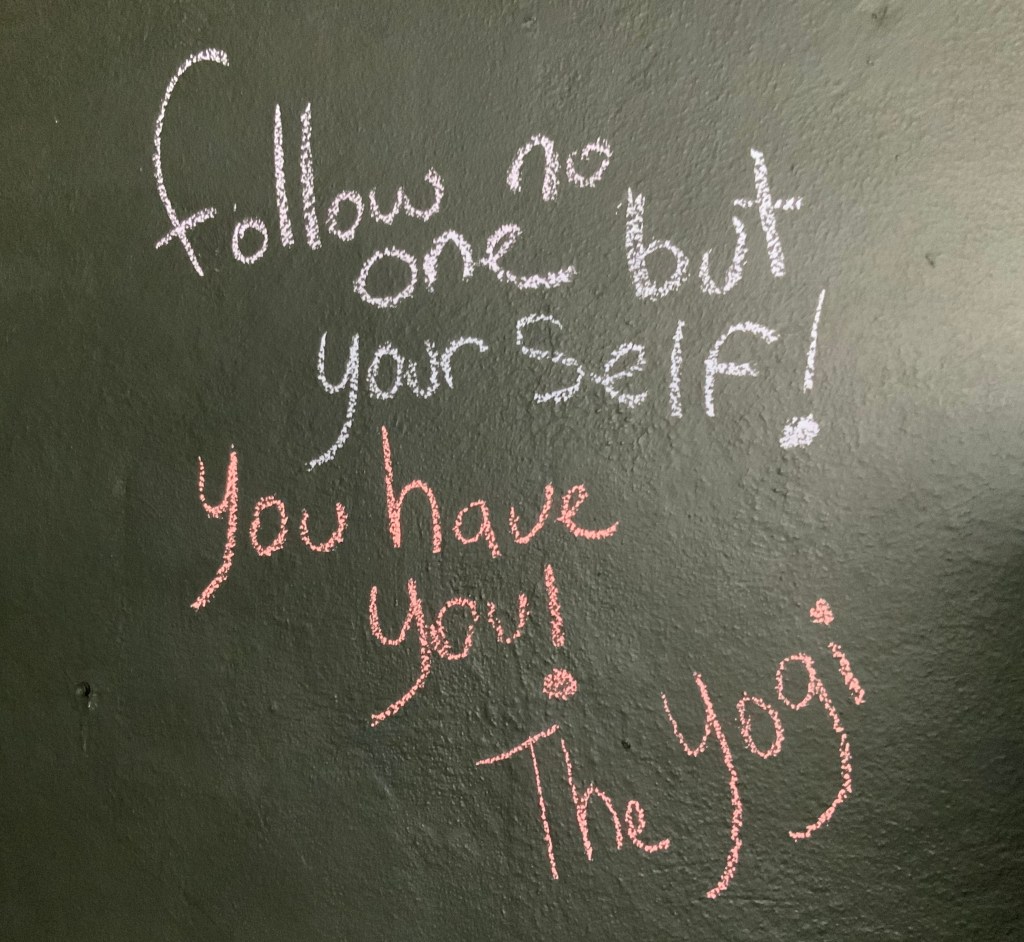 follow no
one but
yourSelf!
you have
you!
The yogi